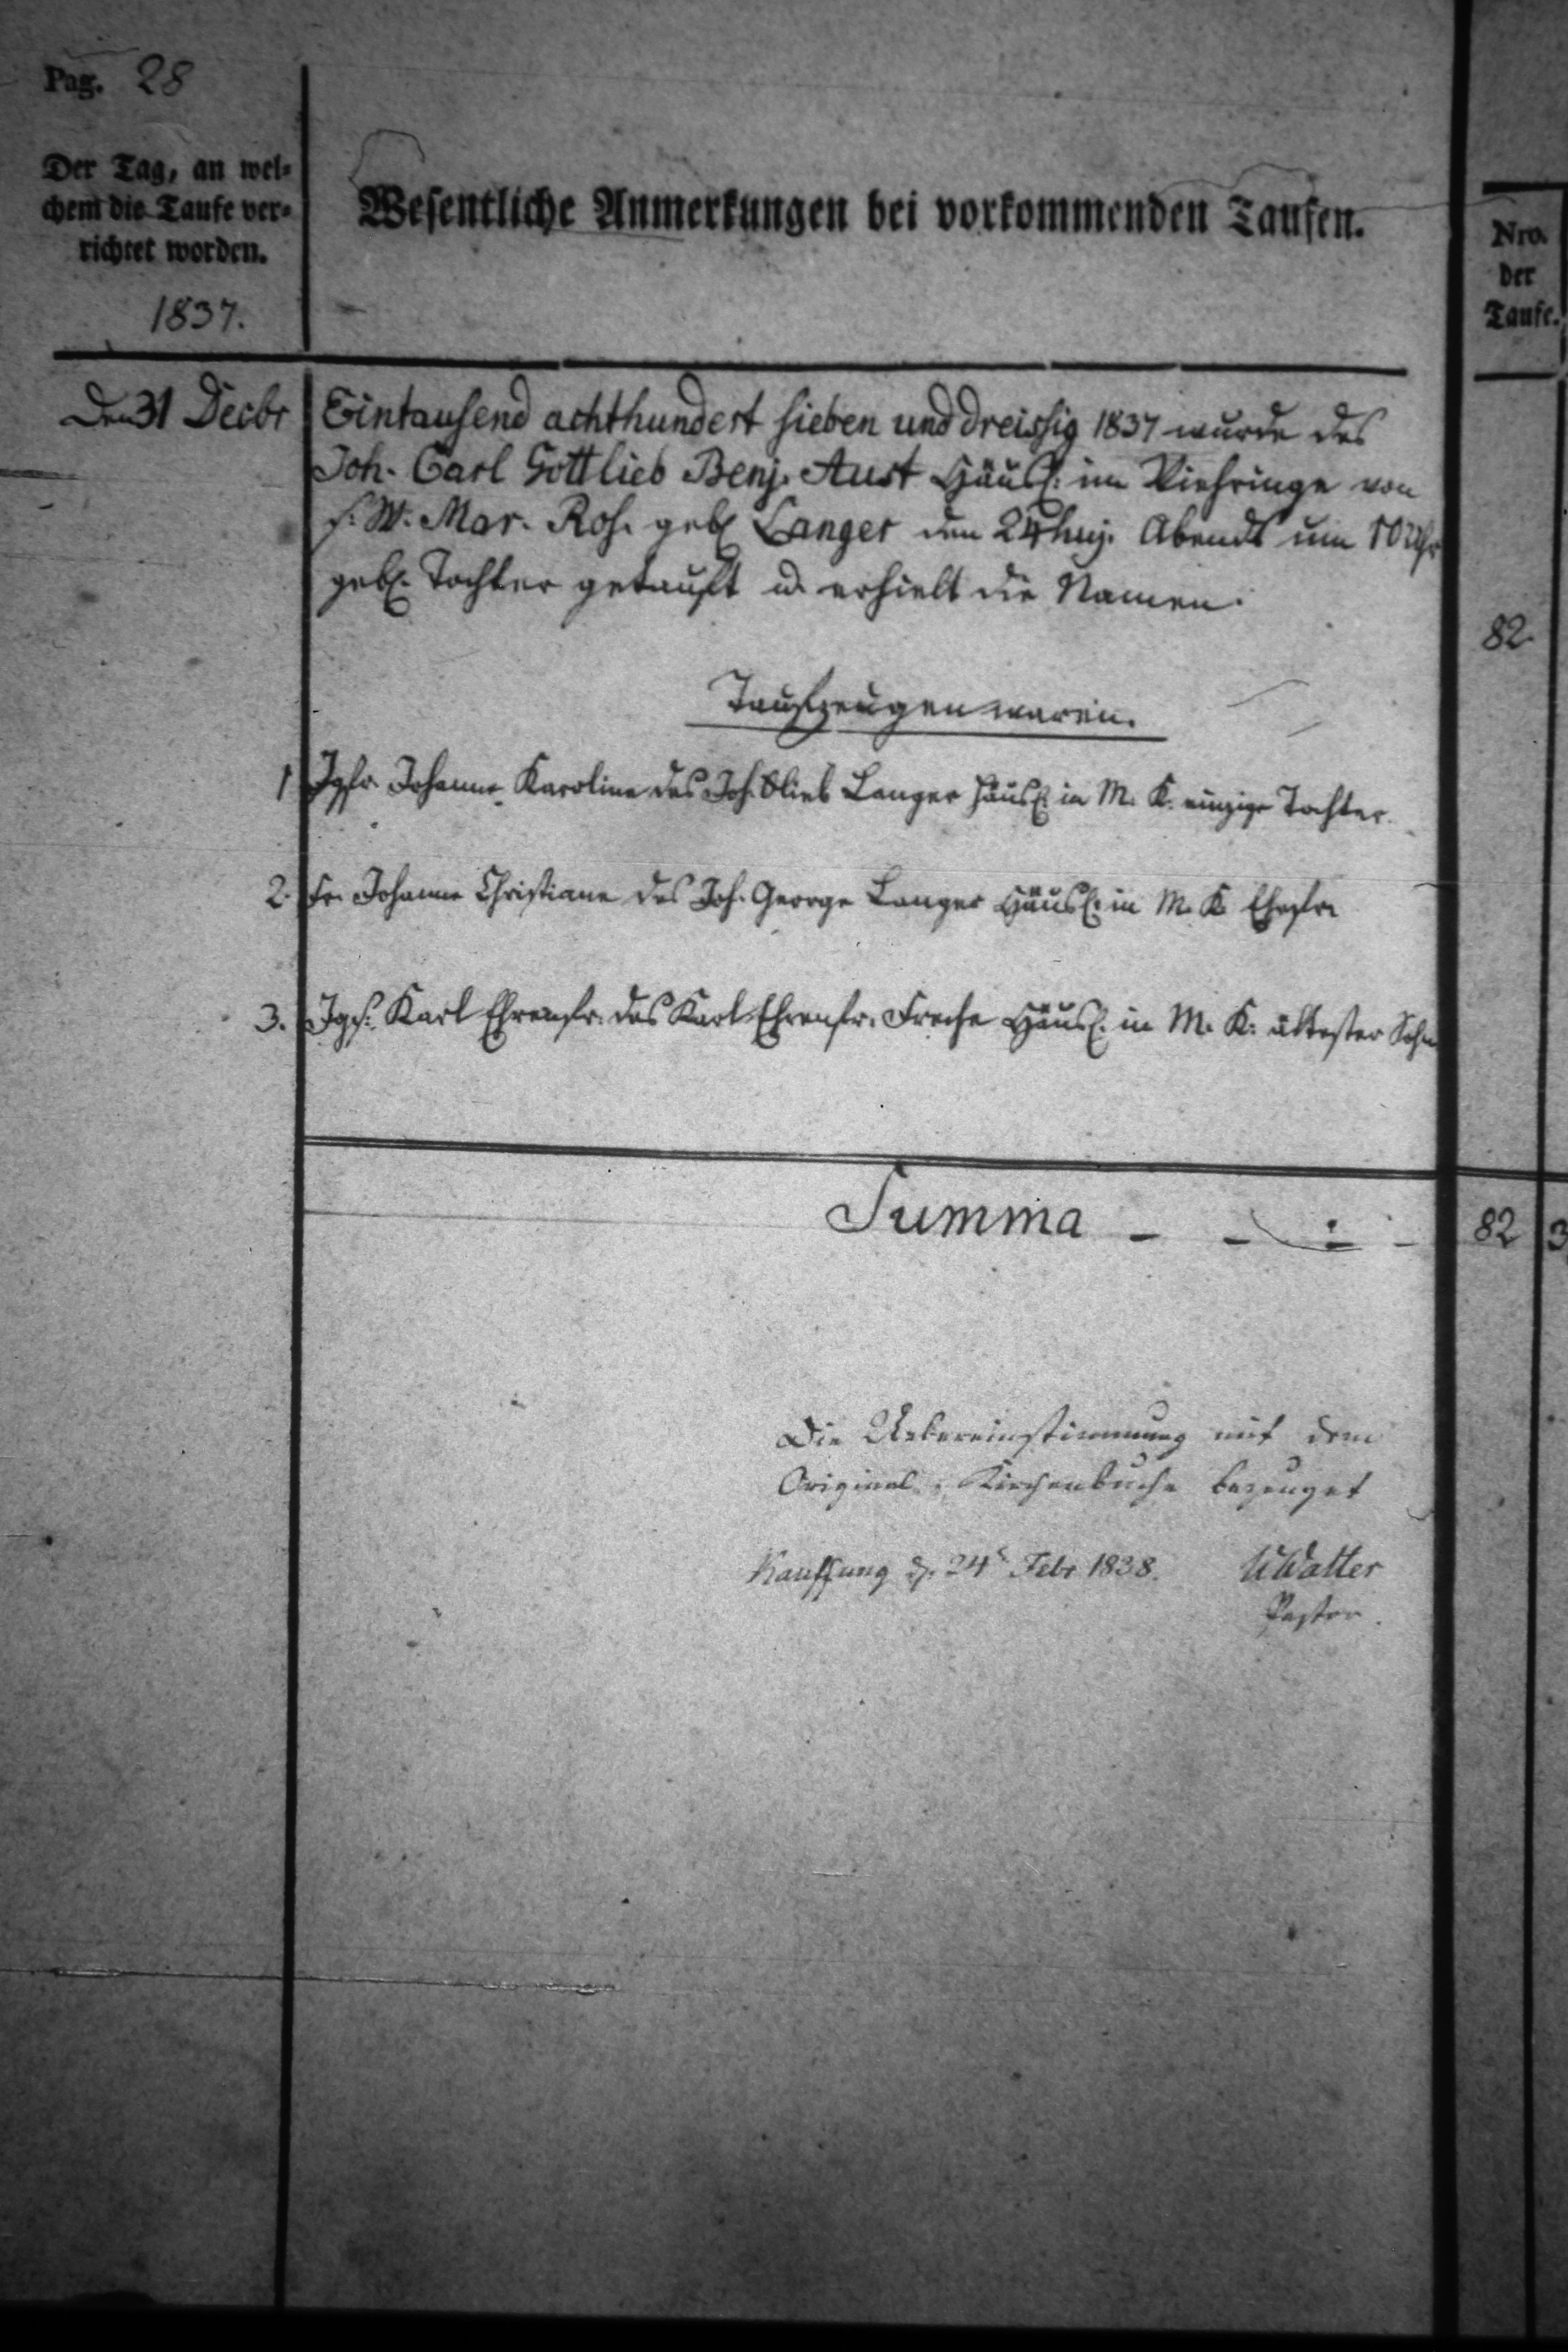 Pag. 28
Der Tag, an wel-
chem die Taufe ver-
richtet worden.
1837.
Wesentliche Anmerkungen bei vorkommenden Taufen.
Nro.
der
Taufe.
Den 31 Decbr
Eintausend achthundert sieben und dreissig 1837 wurde des
Joh. Carl Gottlieb Benj. Aust Häusl. im Viehringe von
s. W. Mar. Ros. geb. Langer den 24 huj. Abends um 10 Uhr
geb. Tochter getauft u. erhielt die Namen.
82
Taufzeugen waren.
1 Jgfr. Johanne Karoline des Joh. Glieb Langer Häusl. in M. K. einzige Tochter.
2. Fr. Johanne Christiane des Joh. George Langer Häusl. in M. K. Ehefr.
3. Jgs. Karl Ehrenfr. des Karl Ehrenfr. Freche Häusl. in M. K. ältester Sohn
Summa - - - - 82 3
Die Uebereinstimmung mit dem
Original-Kirchenbuche bezeuget
Kauffung d. 24t Febr 1838. Walter
Pastor.